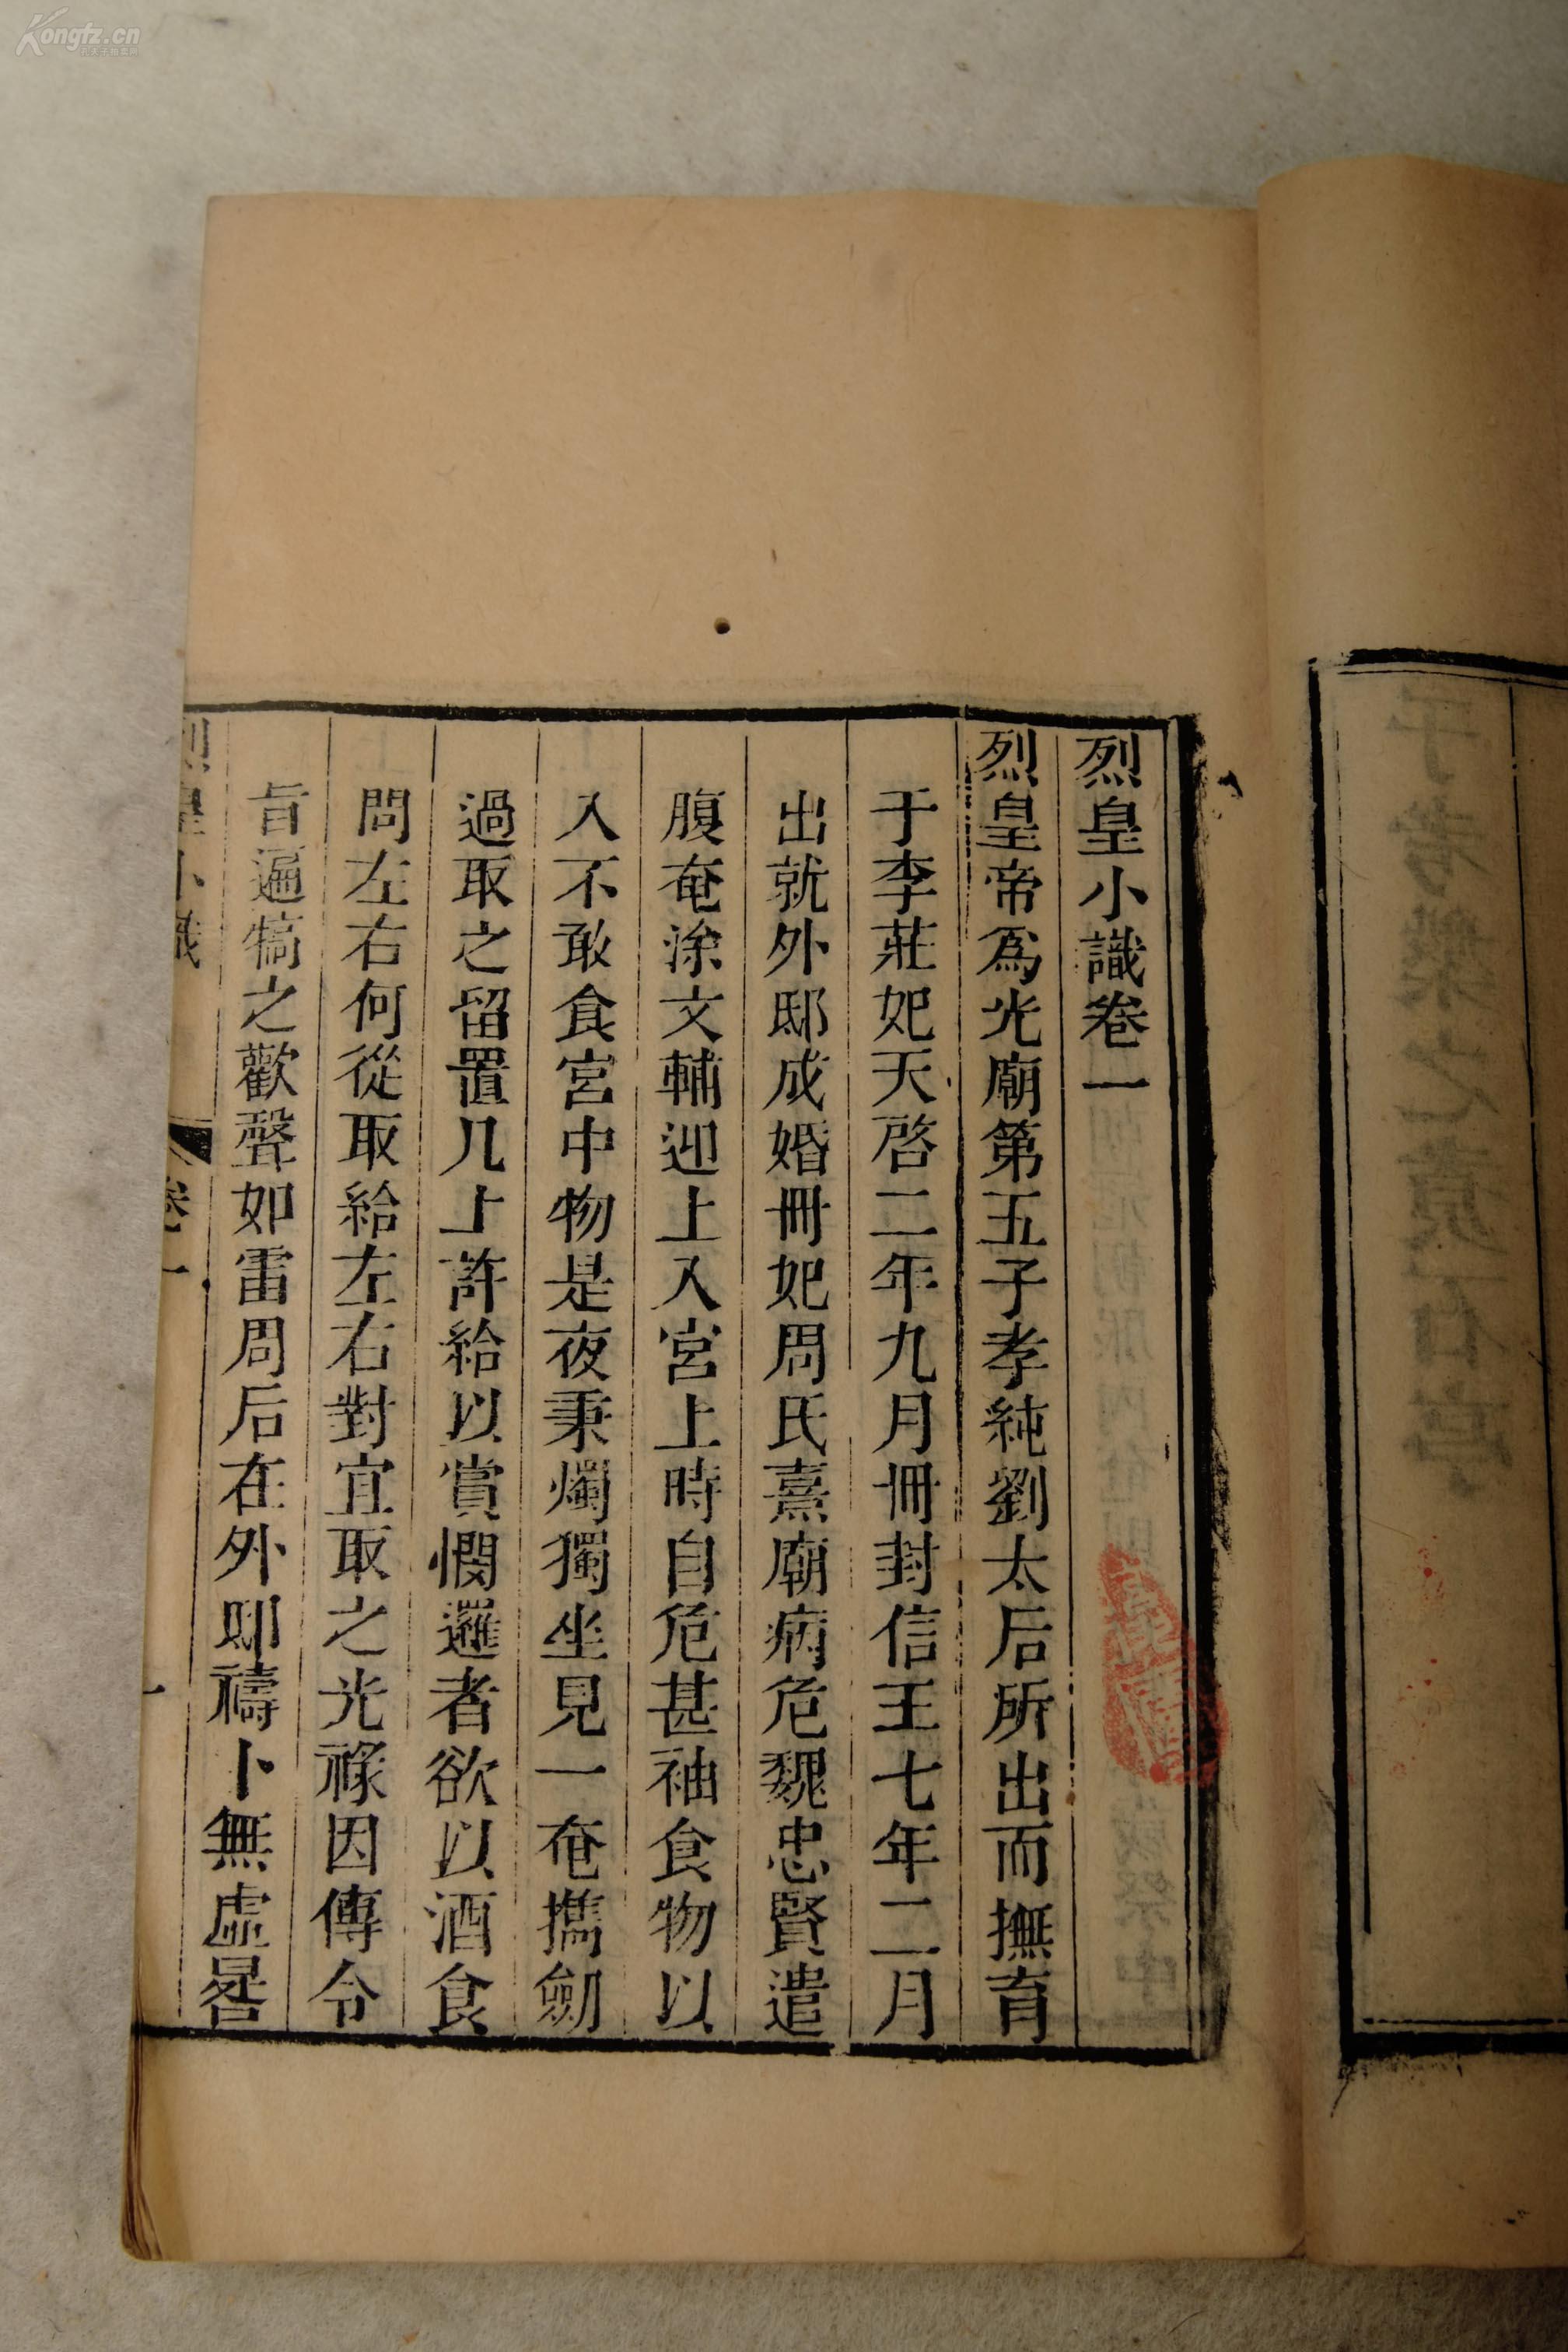 烈皇小識卷一
烈皇帝爲光廟第五子孝純劉太后所出而撫育
于李莊妃天啓二年九月冊封信王七年二月
出就外邸成婚冊妃周氏熹廟病危魏忠賢遣
腹奄涂文輔迎上入宮上時自危甚袖食物以
入不敢食宮中物是夜秉燭獨坐見一奄擕劒
過取之留置几上許給以賞憫邏者欲以酒食
問左右何從取給左右對宜取之光祿因傳令
旨遍犒之歡聲如雷周后在外邸禱卜無虛晷
烈皇小識
卷一
一
Kongfz.cn